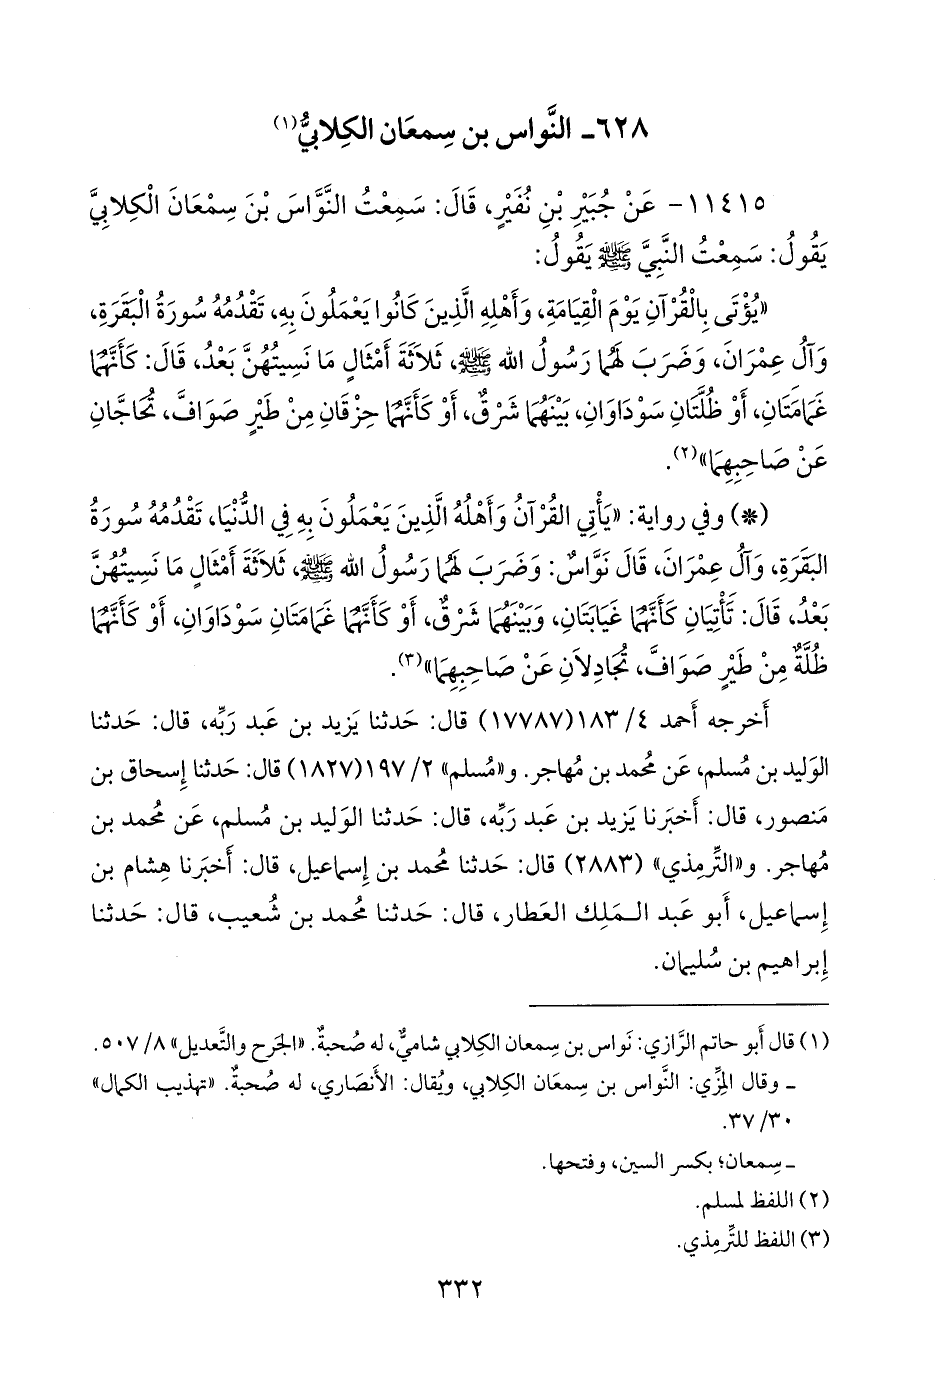 ٦٢٨ـ النَّواس بن سِمعَان الكِلابيُّ(١)
١١٤١٥- عَنْ جُبَيْرِ بْنِ نُفَيْرٍ، قَالَ: سَمِعْتُ النَّوَّاسَ بْنَ سِمْعَانَ الْكِلابِيَّ
يَقُولُ: سَمِعْتُ النَّبِيَّ ﷺ يَقُولُ:
«يُؤْتَى بِالْقُرْآنِ يَوْمَ الْقِيَامَةِ، وَأَهْلِهِ الَّذِينَ كَانُوا يَعْمَلُونَ بِهِ، تَقْدُمُهُ سُورَةُ الْبَقَرَةِ،
وَآلُ عِمْرَانَ، وَضَرَبَ لَهُمَا رَسُولُ الله ﷺ، ثَلاَثَةَ أَمْثَالٍ مَا نَسِيتُهُنَّ بَعْدُ، قَالَ: كَأَنَّهُمَا
غَمَامَتَانِ، أَوْ ظُلَّتَانِ سَوْدَاوَانِ، بَيْنَهُمَا شَرْقٌ، أَوْ كَأَنَّهُمَا حِزْقَانِ مِنْ طَيْرٍ صَوَافَّ، تُحَاجَّانِ
عَنْ صَاحِبِهِمَا»(٢).
(*) وفي رواية: «يَأْتِي القُرْآنُ وَأَهْلُهُ الَّذِينَ يَعْمَلُونَ بِهِ فِي الدُّنْيَا، تَقْدُمُهُ سُورَةُ
البَقَرَةِ، وَآلُ عِمْرَانَ، قَالَ نَوَّاسٌ: وَضَرَبَ لَهُمَا رَسُولُ الله ﷺ، ثَلاَثَةَ أَمْثَالٍ مَا نَسِيتُهُنَّ
بَعْدُ، قَالَ: تَأْتِيَانِ كَأَنَّهُمَا غَيَابَتَانِ، وَبَيْنَهُمَا شَرْقٌ، أَوْ كَأَنَّهُمَا غَمَامَتَانِ سَوْدَاوَانِ، أَوْ كَأَنَّهُمَا
ظُلَّةٌ مِنْ طَيْرٍ صَوَافَّ، تُجَادِلاَنِ عَنْ صَاحِبِهِمَا»(٣).
أَخرجه أَحمد ٤/ ١٨٣(١٧٧٨٧) قال: حَدثنا يَزيد بن عَبد رَبِّه، قال: حَدثنا
الوَليد بن مُسلم، عَن مُحمد بن مُهاجر. و«مُسلم» ٢/ ١٩٧(١٨٢٧) قال: حَدثنا إِسحاق بن
مَنصور، قال: أَخبَرنا يَزيد بن عَبد رَبِّه، قال: حَدثنا الوَليد بن مُسلم، عَن مُحمد بن
مُهاجر. و«التِّرمِذي» (٢٨٨٣) قال: حَدثنا مُحمد بن إِسماعيل، قال: أَخبَرنا هِشام بن
إِسماعيل، أَبو عَبد الـمَلِك العَطار، قال: حَدثنا مُحمد بن شُعيب، قال: حَدثنا
إِبراهيم بن سُليمان.
(١) قال أَبو حاتم الرَّازي: نَواس بن سِمعان الكِلابي شاميٌّ، له صُحبةٌ. «الجَرح والتَّعديل» ٨/ ٥٠٧.
ـ وقال المِزِّي: النَّواس بن سِمعَان الكِلابي، ويُقال: الأَنصَاري، له صُحبةٌ. «تهذيب الكمال»
٣٠/ ٣٧.
ـ سِمعان؛ بكسر السين، وفتحها.
(٢) اللفظ لمسلم.
(٣) اللفظ للتِّرمِذي.
٣٣٢